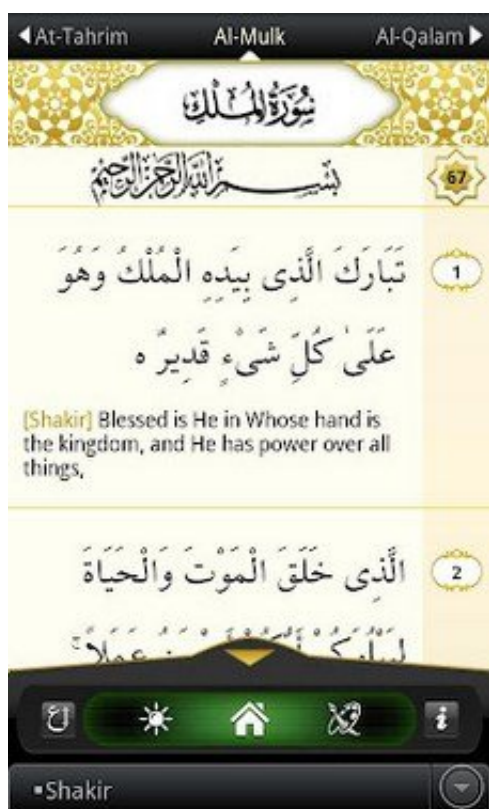 At-Tahrim Al-Mulk Al-Qalam
سُورَةُ الْمُلْكِ
بِسْمِ اللَّهِ الرَّحْمَٰنِ الرَّحِيمِ 67
تَبَارَكَ الَّذِى بِيَدِهِ الْمُلْكُ وَهُوَ 1
عَلَىٰ كُلِّ شَىْءٍ قَدِيرٌ ه
[Shakir] Blessed is He in Whose hand is
the kingdom, and He has power over all
things,
الَّذِى خَلَقَ الْمَوْتَ وَالْحَيَاةَ 2
عَمَلًا ۚ
Shakir